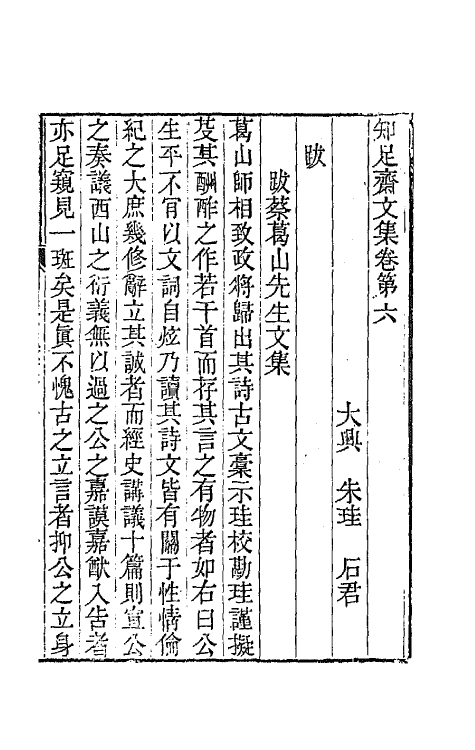 知足齋文集卷第六
大興 朱珪 石君
跋
跋蔡葛山先生文集
葛山師相致政將歸出其詩古文稾示珪校勘珪謹擬
芟其酬酢之作若干首而存其言之有物者如右曰公
生平不肎以文詞自炫乃讀其詩文皆有關于性情倫
紀之大庶幾修辭立其誠者而經史講議十篇則宣公
之奏議西山之衍義無以過之公之嘉謨嘉猷入告者
亦足窺見一斑矣是眞不愧古之立言者抑公之立身